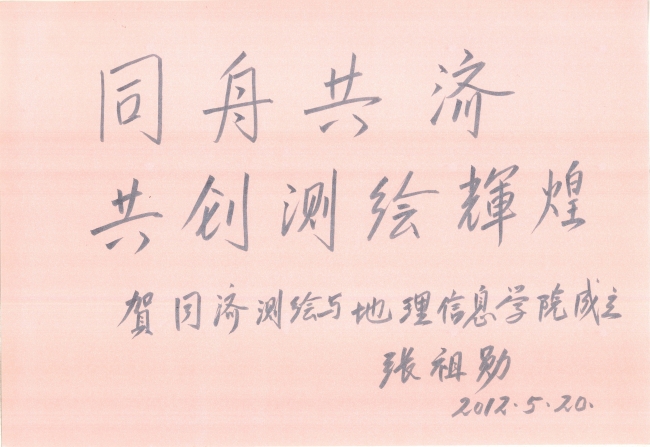 同舟共济
共创测绘輝煌
賀同济测绘与地理信息学院成立
张祖勋
2012.5.20.